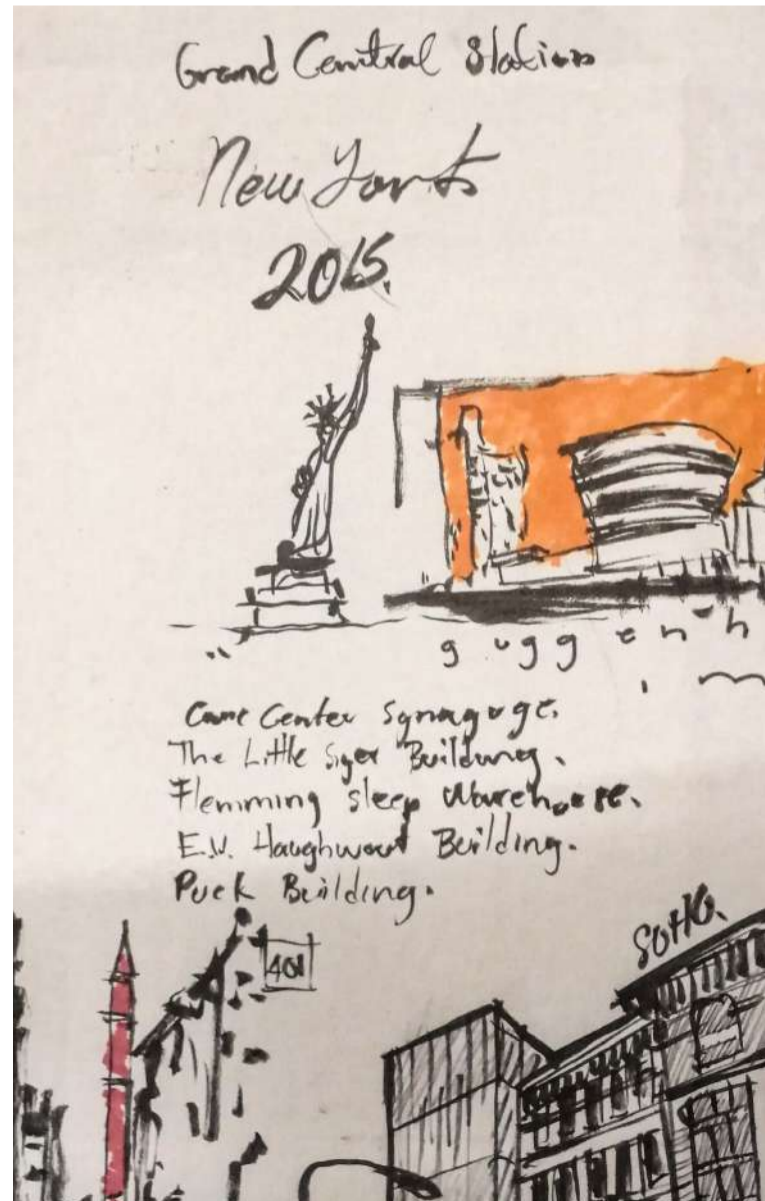 Grand Central Station
New York
2015.
guggenh
Center Synagoge.
The Little Building.
Flemming sleep Warehouse.
E.W. Haughwout Building.
Puck Building.
401
SOHO.